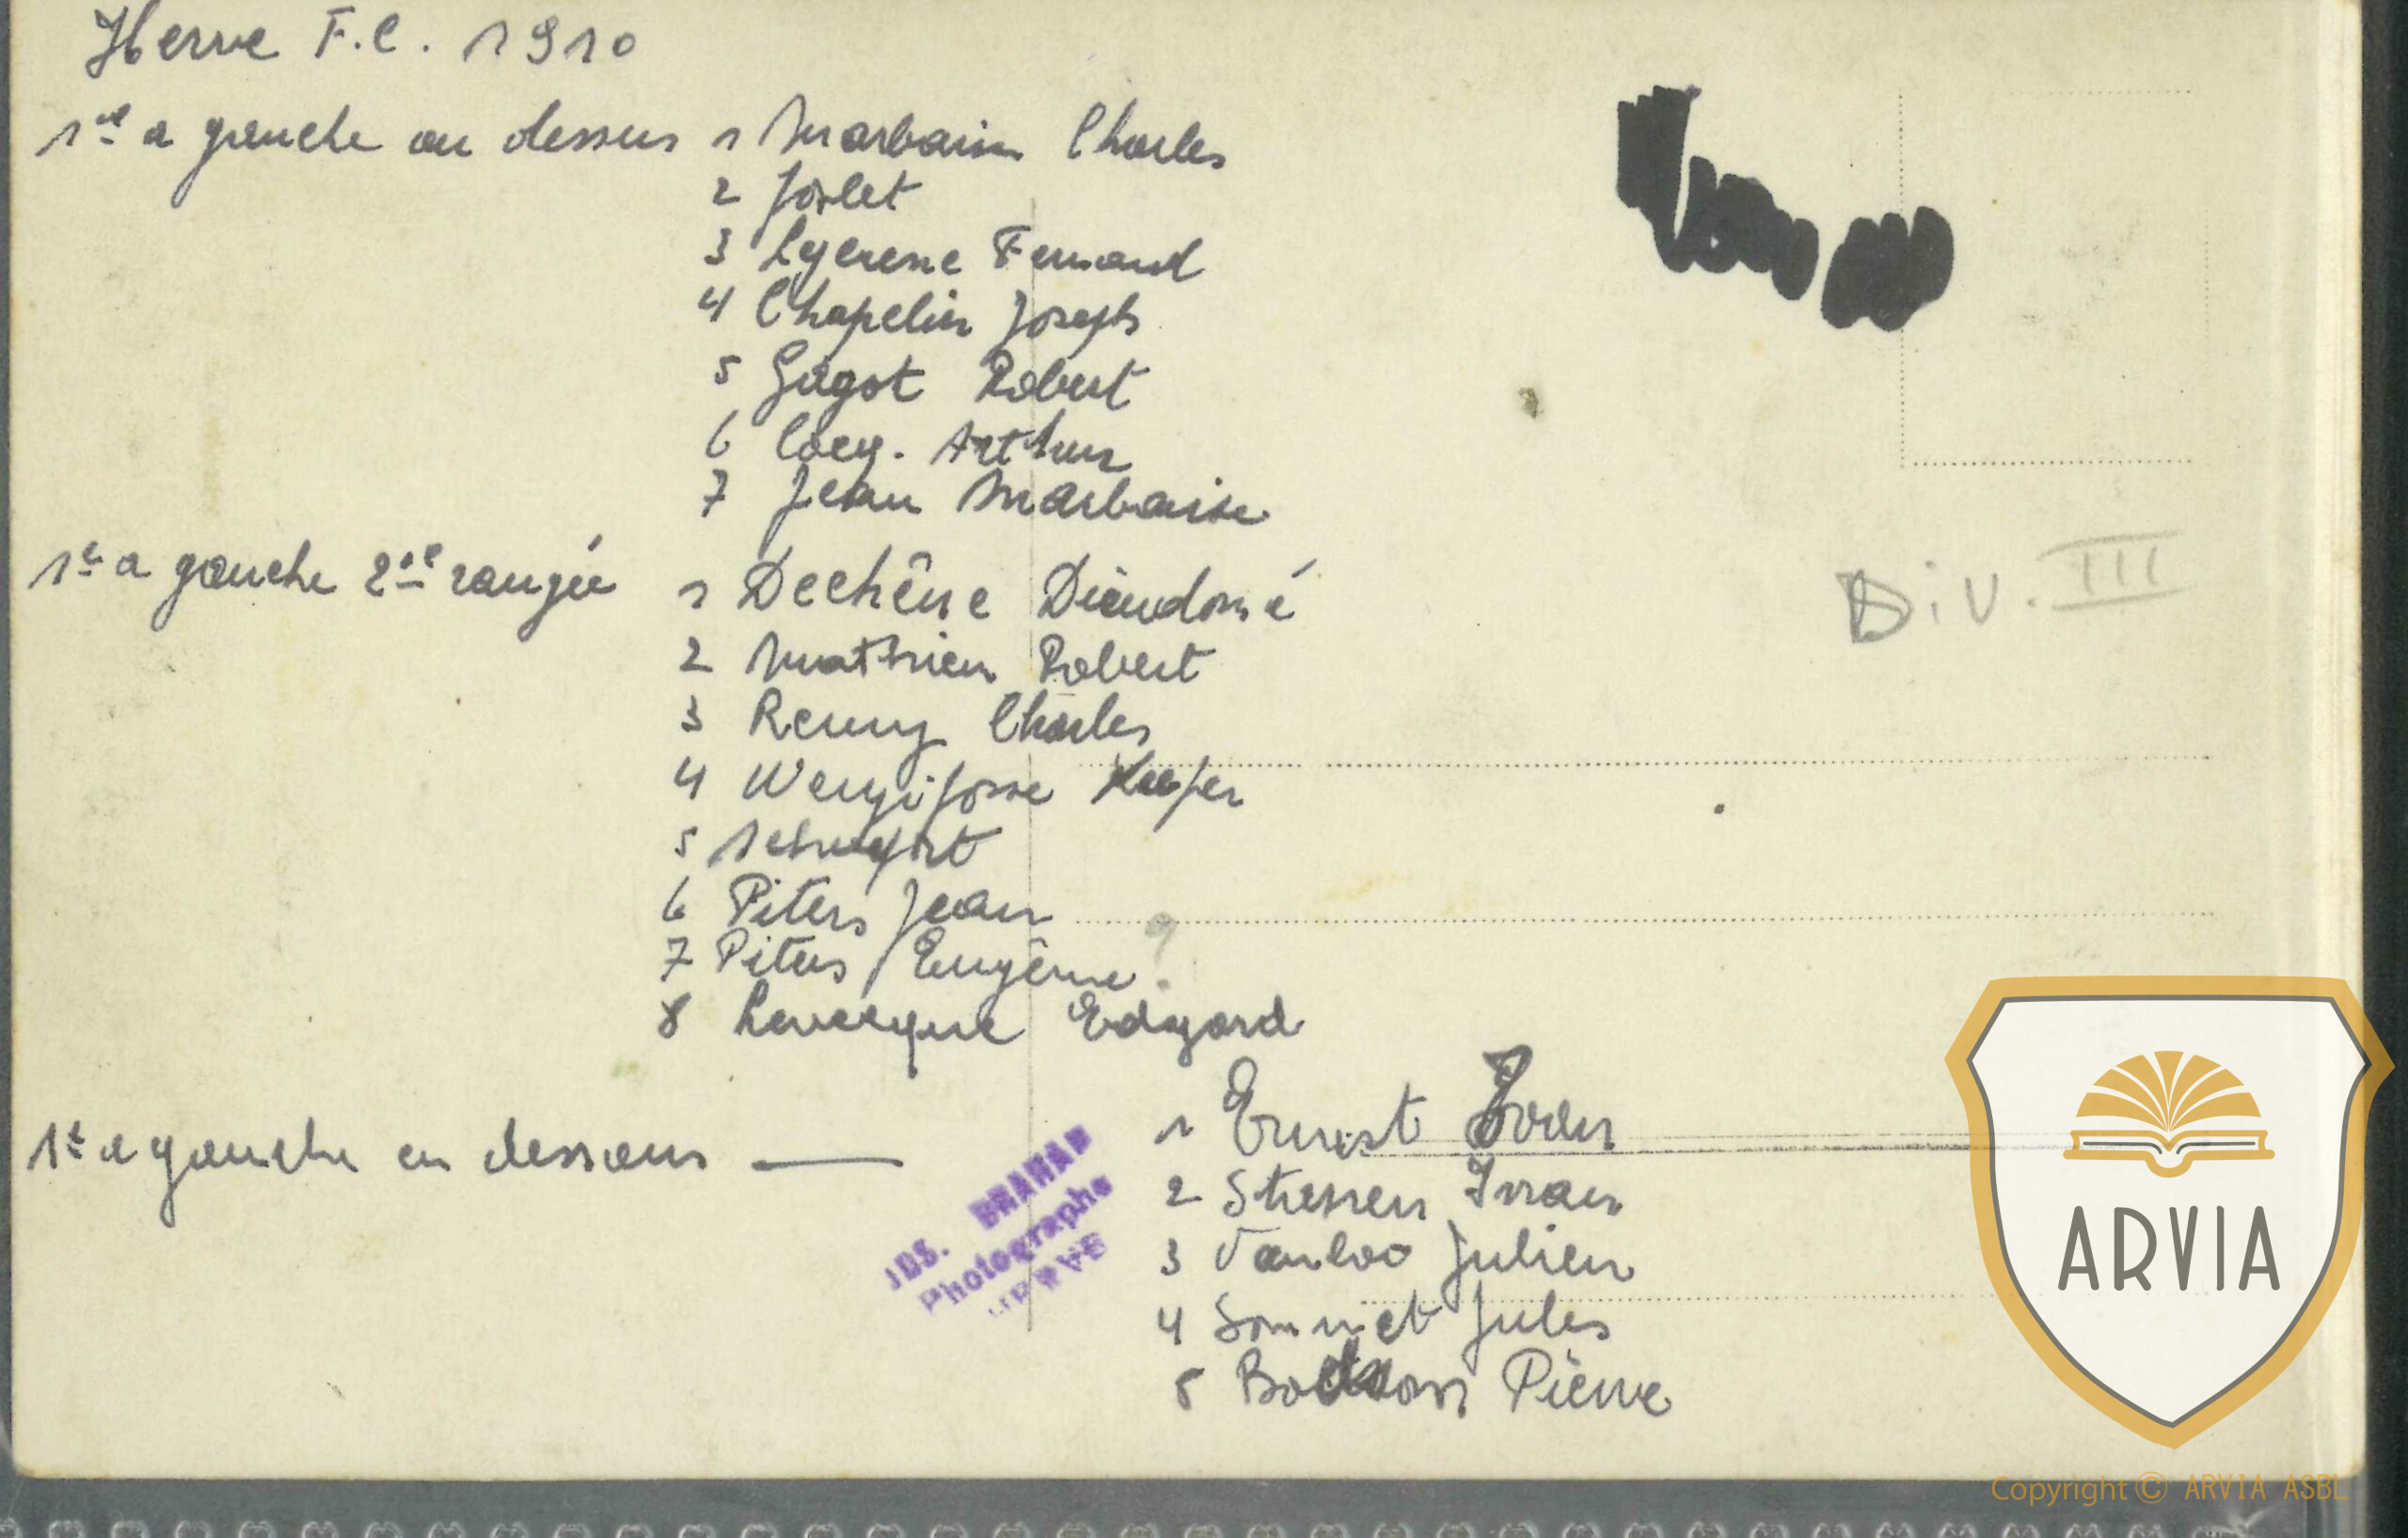 Herve F.C. 1910
1er a gauche au dessus 1 Marbaise Charles
2 Jorlet
3 Lyerene Fernand
4 Chapelier Joseph
5 Gugot Robert
6 Cocq. Arthur
7 Jean Marbaise
1er a gauche 2me rangée 1 Dechêne Dieudonné
2 Mathieu Robert
3 Remy Charles
4 Wergifosse
5
6 Piters Jean
7 Piters Eugène ?
8 Levecque Edgard
Div. III
1er a gauche en dessous — 1 Ernest
2 Ivan
3 Vanloo Julien
4 Jules
5 Pierre
JOS. BRAHAM
Photographe
HERVE
ARVIA
Copyright © ARVIA ASBL